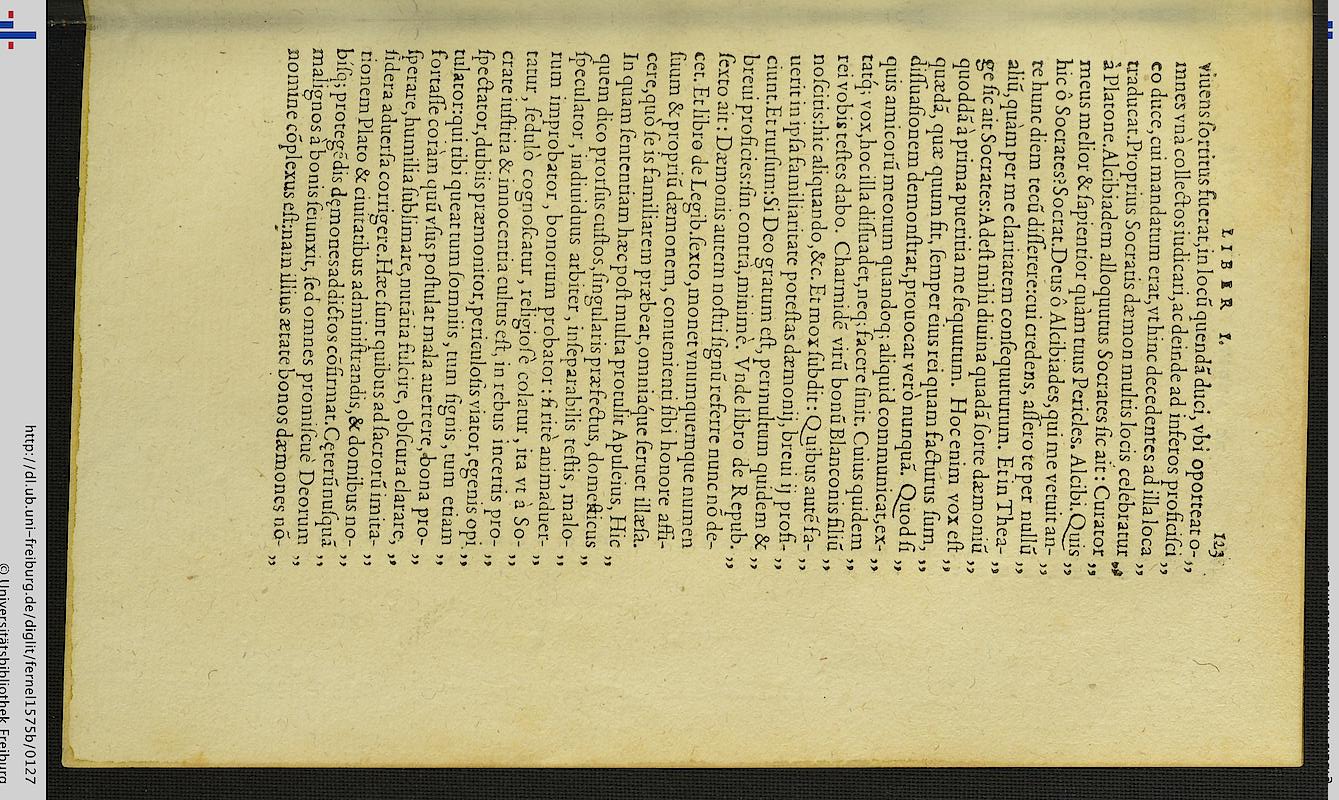 LIBER I. 123
viuens sortitus fuerat, in locū quendā duci, vbi oporteat o- ,,
mnes vnà collectos iudicari, ac deinde ad inferos proficisci ,,
eo duce, cui mandatum erat, vt hinc decedentes ad illa loca ,,
traducat. Proprius Socratis dæmon multis locis celebratur ,,
à Platone. Alcibiadem alloquutus Socrates sic ait: Curator ,,
meus melior & sapientior quàm tuus Pericles. Alcibi. Quis ,,
hic ô Socrates? Socrat. Deus ô Alcibiades, qui me vetuit an- ,,
te hunc diem tecū disserere: cui credens, assero te per nullū ,,
aliū, quàm per me claritatem consequuturum. Et in Thea- ,,
ge sic ait Socrates: Adest mihi diuina quadā sorte dæmoniū ,,
quoddā à prima pueritia me sequutum. Hoc enim vox est ,,
quædā, quæ quum fit, semper eius rei quam facturus sum, ,,
dissuasionem demonstrat, prouocat verò nunquā. Quod si ,,
quis amicorū meorum quandoq; aliquid communicat, ex- ,,
tatq́; vox, hoc illa dissuadet, neq; facere sinit. Cuius quidem ,,
rei vobis testes dabo. Charmidē virū bonū Blanconis filiū ,,
noscitis: hic aliquando, &c. Et mox subdit: Quibus autē fa- ,,
uerit in ipsa familiaritate potestas dæmonij, breui ij profi- ,,
ciunt. Et rursum: Si Deo gratum est, permultum quidem & ,,
breui proficies: sin contrà, minimè. Vnde libro de Repub. ,,
sexto ait: Dæmonis autem nostri signū referre nunc nō de- ,,
cet. Et libro de Legib. sexto, monet vnumquemque numen
suum & propriū dæmonem, conuenienti sibi honore affi-
cere, quò se is familiarem præbeat, omniáque seruet illæsa.
In quam sententiam hæc post multa protulit Apuleius, Hic
quem dico prorsus custos, singularis præfectus, domesticus ,,
speculator, indiuiduus arbiter, inseparabilis testis, malo- ,,
rum improbator, bonorum probator: si ritè animaduer- ,,
tatur, sedulò cognoscatur, religiosè colatur, ita vt à So- ,,
crate iustitia & innocentia cultus est, in rebus incertus pro- ,,
spectator, dubiis præmonitor, periculosis viator, egenis opi ,,
tulator: qui tibi queat tum somniis, tum signis, tum etiam ,,
fortasse coràm quū vsus postulat mala auertere, bona pro- ,,
sperare, humilia sublimare, nutātia fulcire, obscura clarare, ,,
sidera aduersa corrigere. Hæc sunt quibus ad sacrorū imita- ,,
tionem Plato & ciuitatibus administrandis, & domibus no- ,,
bisq; protegēdis dęmones addictos cōfirmat. Cęterū nusquā ,,
malignos à bonis seiunxit, sed omnes promiscuè Deorum ,,
nomine cōplexus est: nam illius ætate bonos dæmones nō- ,,
http://dl.ub.uni-freiburg.de/diglit/fernel1575b/0127
© Universitätsbibliothek Freiburg